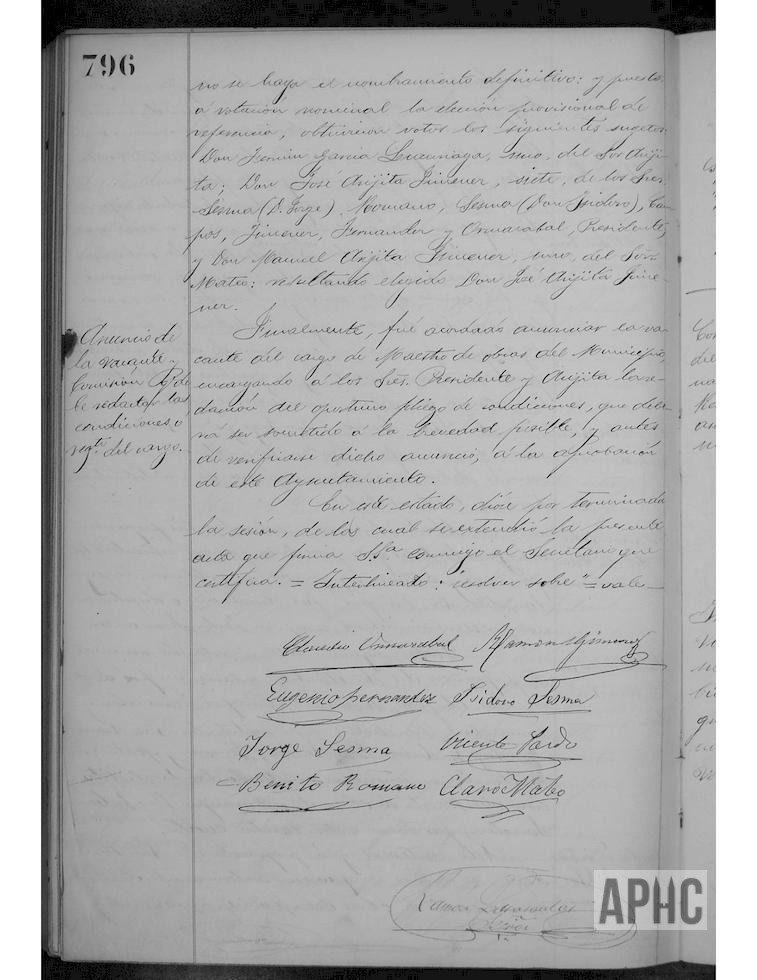 796
no se haga el nombramiento definitivo: y puesta
á votación nominal la elección provisional de
referencia, obtuvieron votos los siguientes sugetos:
Don Fermin García Lucuriaga, uno, del Sor Arji-
ta; Don José Arijita Jimener, siete, de los Sres.
Sesma (D. Jorge), Romano, Sesma (Don Isidoro), Cam-
pos, Jimener, Fernander y Presidente,
y Don Manuel Arijita Jimener, uno, del Sor.
Mateo: resultando elegido Don José Arijita Jime-
ner.
Anuncio de
la vacante y
Comisión
redactar las
condiciones o
regto. del cargo.
Finalmente, fué acordado anunciar la va-
cante del cargo de Maestro de obras del Municipio,
encargando á los Sres. Presidente y Arijita la re-
dacción del oportuno pliego de condiciones, que debe-
rá ser sometido á la brevedad posible, y antes
de verificarse dicho anuncio, á la aprobación
de este Ayuntamiento.
En este estado, dióse por terminada
la sesión, de las cual se extendió la presente
acta que firma SSa. conmigo el Secretario que
certifica. = Interlineado: "resolver sobre" = vale
Claudio Ramon Gimenez
Eugenio fernandez Isidoro Sesma
Jorge Sesma Vicente Pardo
Benito Romano Claro Mateo
Ramon
APHC